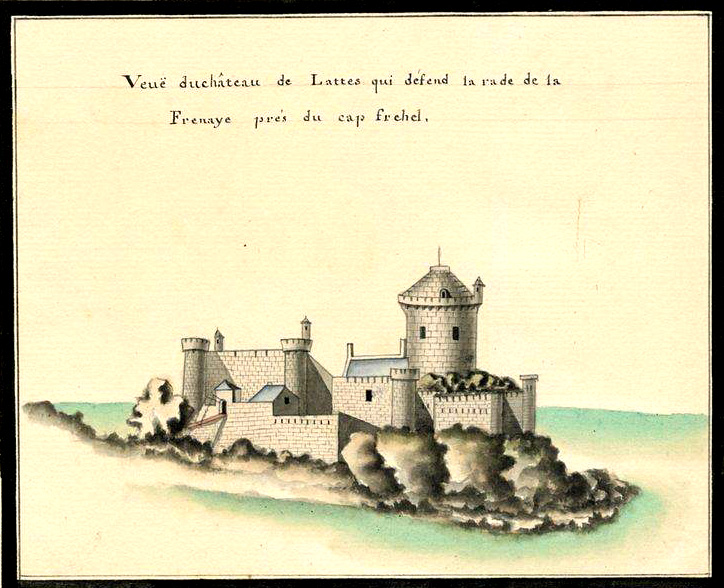 Veuë du château de Lattes qui défend la rade de la
Frenaye prés du cap frehel.